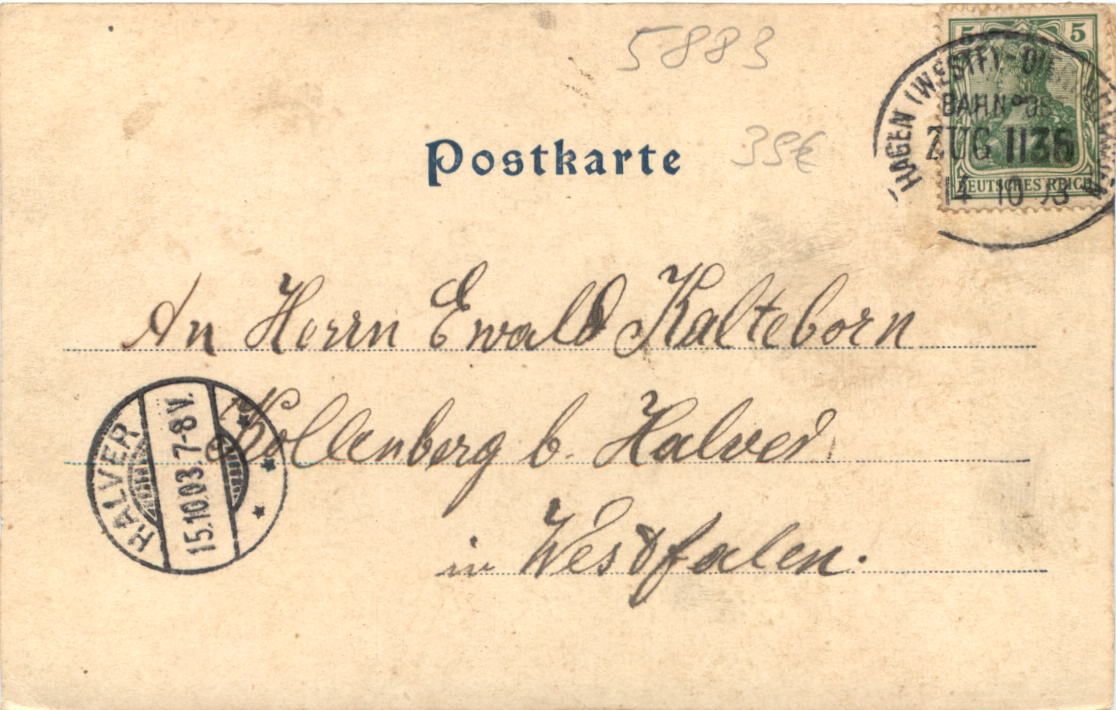 5883
5 5
HAGEN (WESTF)-
BAHNPOST
ZUG 1136
4 10 03
DEUTSCHES REICH
Postkarte
35€
An Herrn Ewald Kalteborn
Kollenberg b. Halver
in Westfalen.
HALVER
15.10.03. 7-8V.